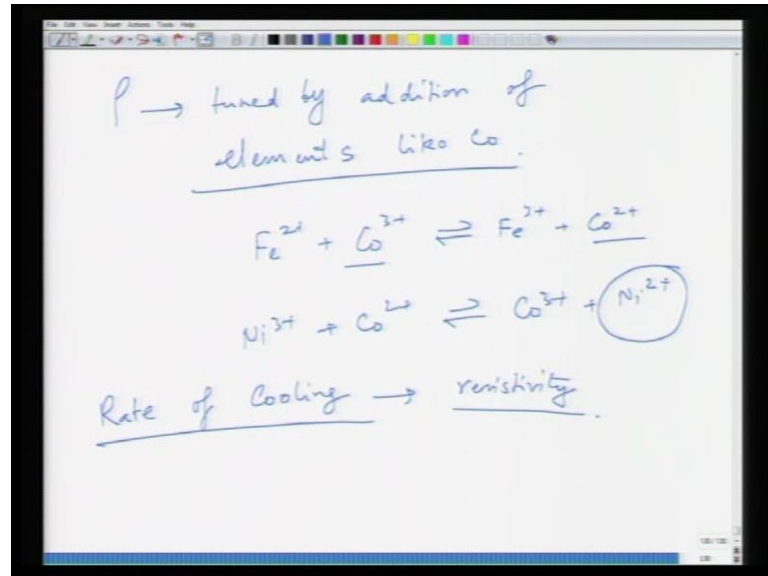 File Edit View Insert Actions Tools Help
ρ → tuned by addition of
elements like Co.
Fe²⁺ + Co³⁺ ⇌ Fe³⁺ + Co²⁺
Ni³⁺ + Co²⁺ ⇌ Co³⁺ + Ni²⁺
Rate of Cooling → resistivity.